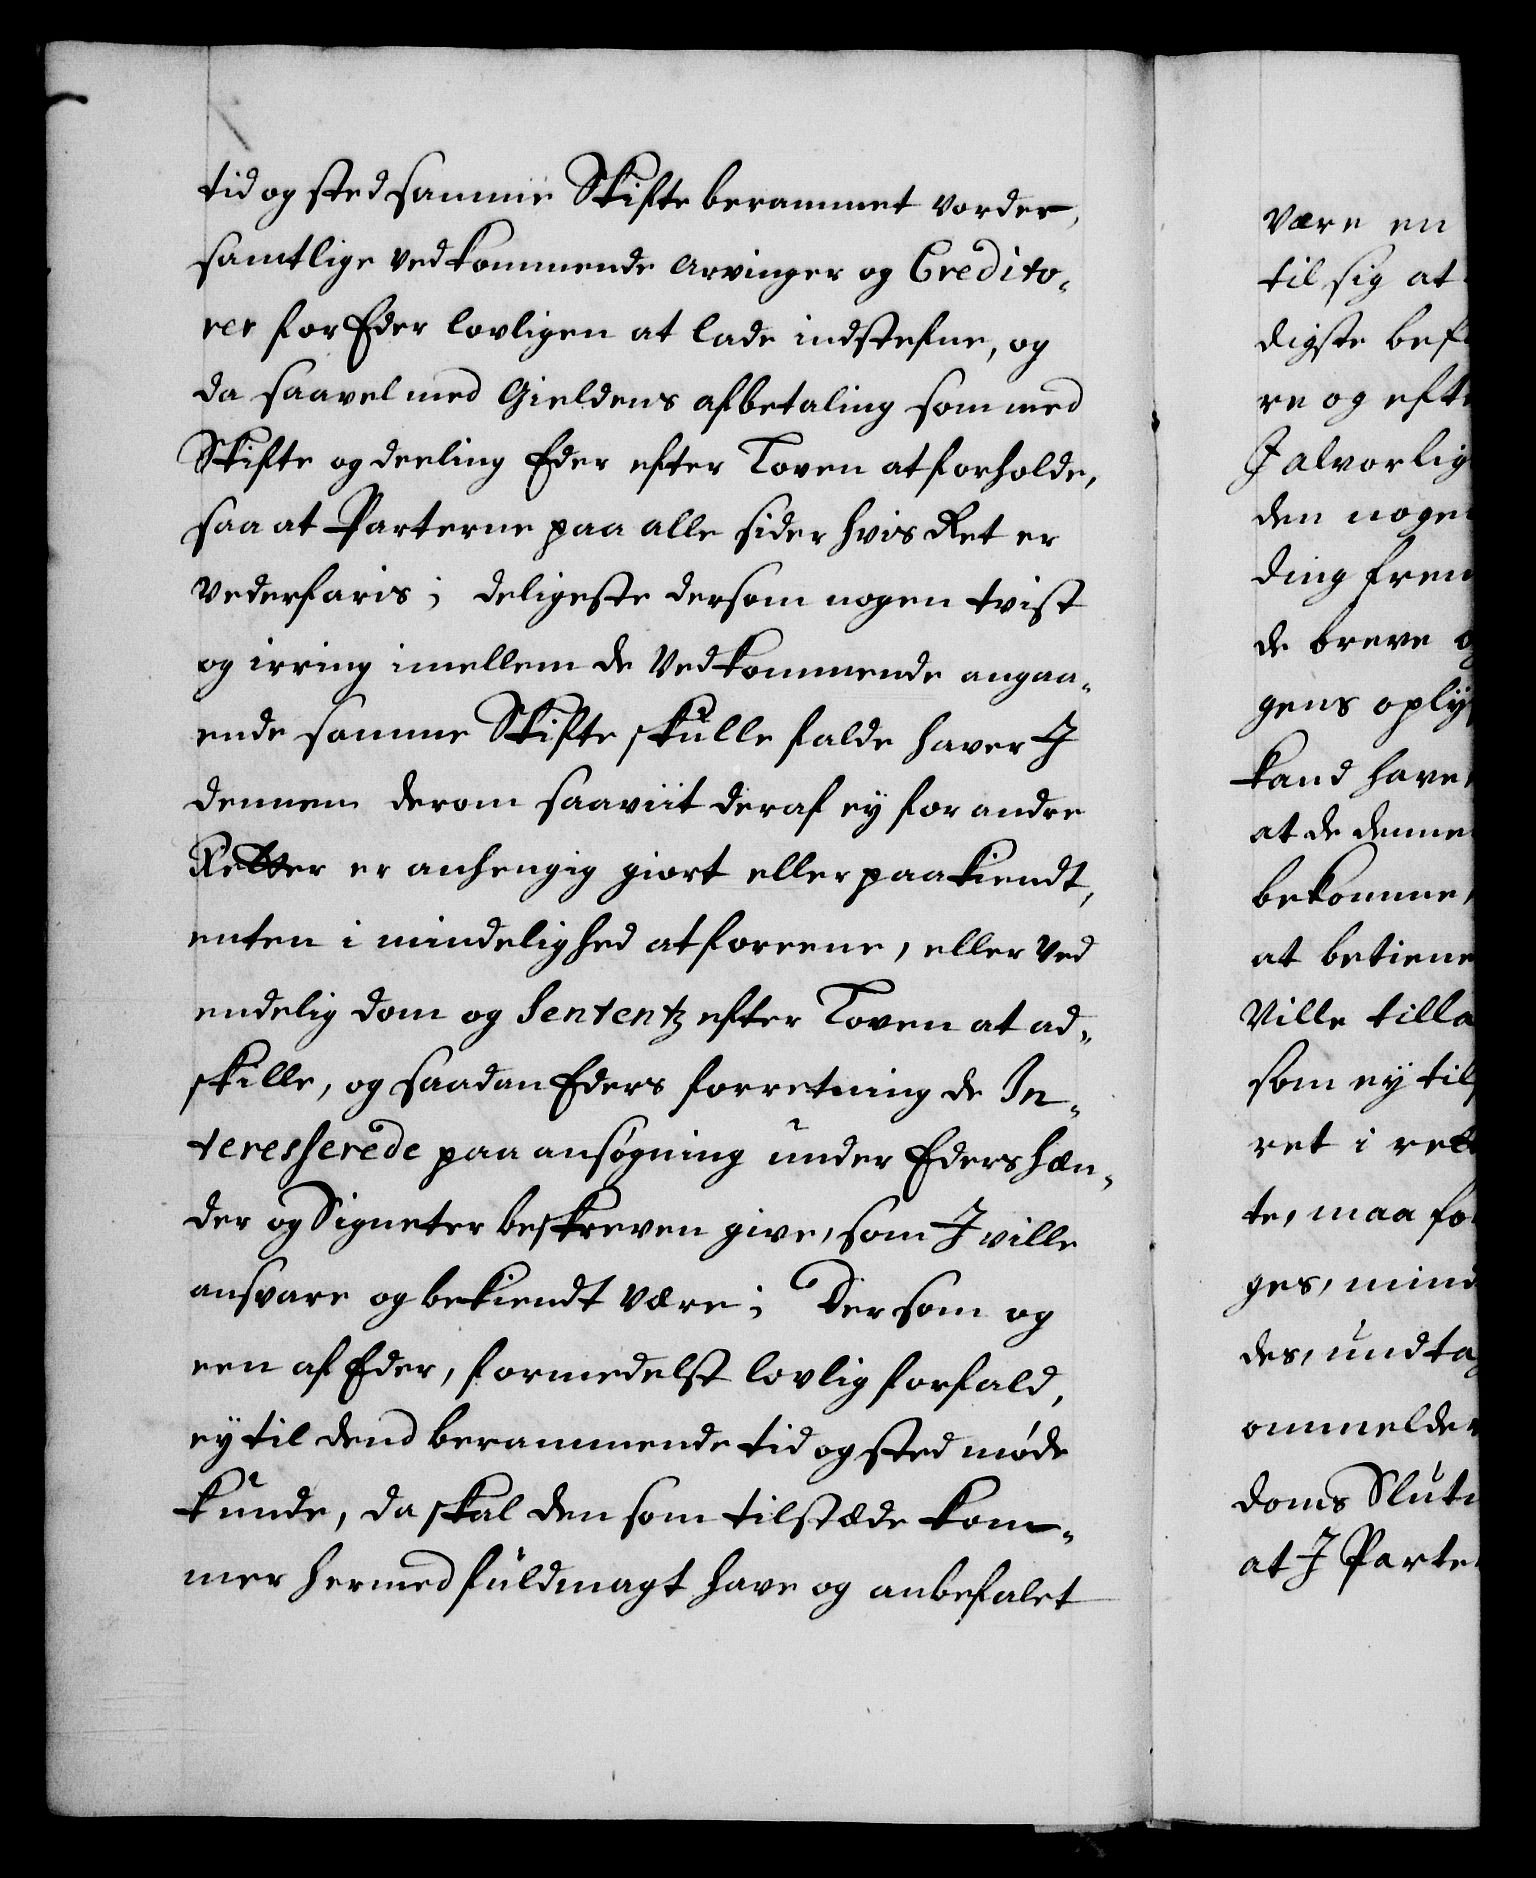 tid og sted samme Skifte berammet vorder,
samtlige vedkommende arvinger og Credito-
rer for Eder lovligen at lade indstefne, og
da saavel med Gieldens afbetaling som med
Skifte og deeling Eder efter Loven at forholde,
saa at Parterne paa alle sider hvis Ret er
vederfaris; deligeste dersom nogen tvist
og irring imellem de vedkommende angaa-
ende samme Skifte skulle falde haver J
dennem derom saaviit deraf ey for andre
Retter er anhengig giort eller paakiendt,
enten i mindelighed at foreene, eller ved
endelig dom og Sententz efter Loven at ad-
skille, og saadan Eders forretning de In-
teresserede paa ansøgning under Eders hæn-
der og Signeter beskreven give, som J ville
ansvare og bekiendt være; Dersom og
een af Eder, formedelst lovlig forfald,
ey til dend berammende tid og sted møde
kunde, da skal den som tilstæde kom-
mer hermed fuldmagt have og anbefalet
være en
til sig at
digste bef
re og eft
J alvorlig
den noge
ding frem
de breve o
gens oply
kand have
at de denne
bekomme,
at betiene
ville tilla
som ey til
ret i rett
te, maa fo
ges, mind
des, undta
ommelde
doms Slut
at J Parte